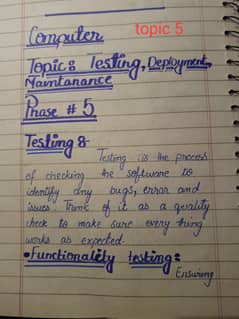 Computer
topic 5
Topic: Testing, Deployment,
Maintanance
Phase # 5
Testing :-
Testing is the process
of checking the software to
identify any bugs, error and
issues. Think of it as a quality
check to make sure every thing
works as expected.
•Functionality testing:
Ensuring